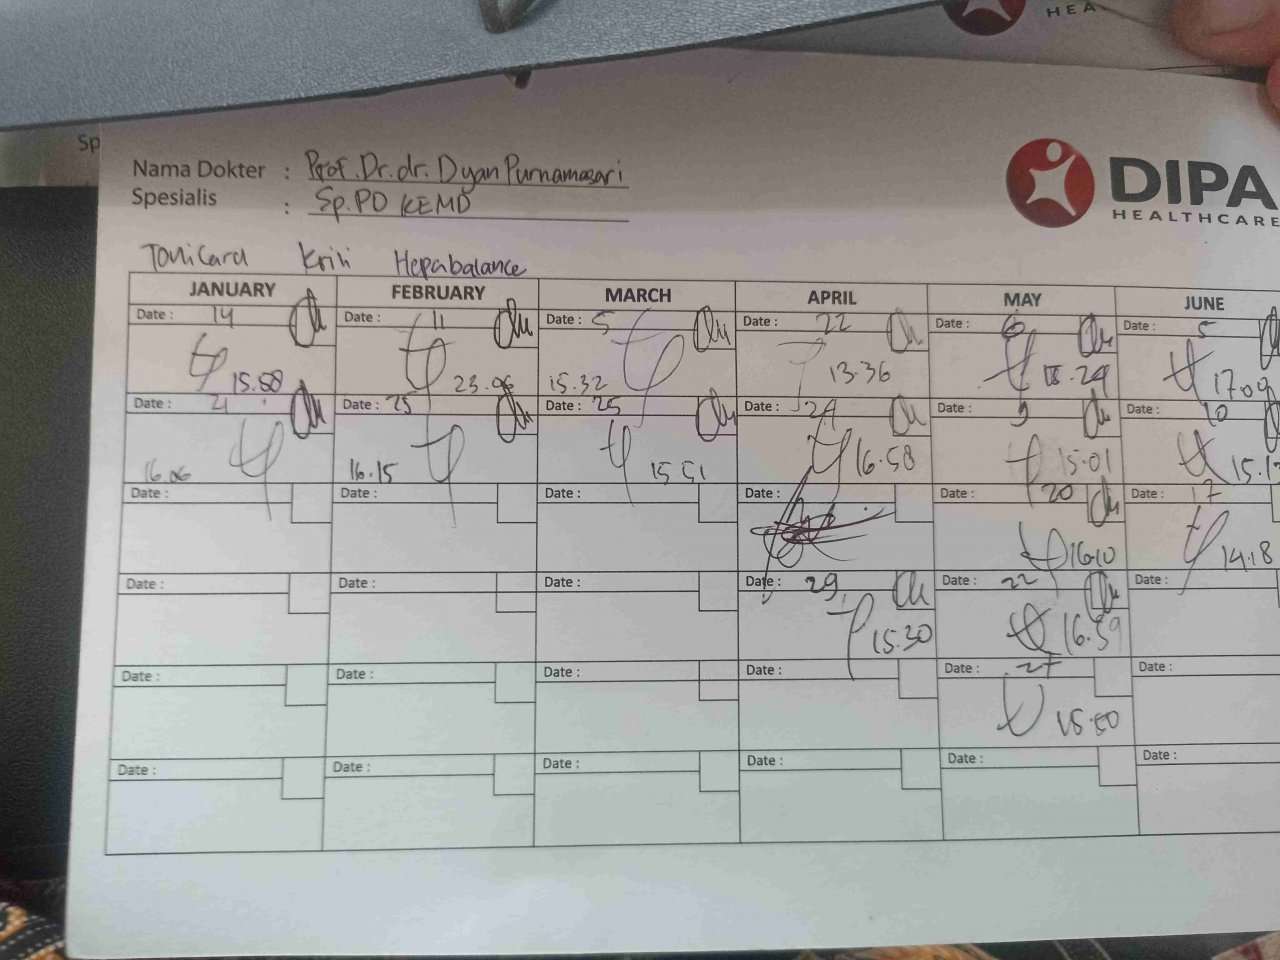 HEA
Sp
Nama Dokter : Prof. Dr. dr. Dyan Purnamasari
Spesialis : Sp.PD KEMD
DIPA
HEALTHCARE
Tonicard Krill Hepabalance
JANUARY FEBRUARY MARCH APRIL MAY JUNE
Date : 14 Date : 11 Date : 5 Date : 22 Date : 6 Date : 5
15.58 23.06 15.32 13.36 15.29 17.09
Date : 21 Date : 25 Date : 25 Date : 24 Date : 9 Date : 10
16.06 16.15 15.51 16.58 15.01 15.1
Date : Date : Date : Date : Date : 20 Date : 17
16.10 14.18
Date : Date : Date : Date : 29 Date : 22 Date :
15.30 16.59
Date : Date : Date : Date : Date : 27 Date :
15.50
Date : Date : Date : Date : Date : Date :